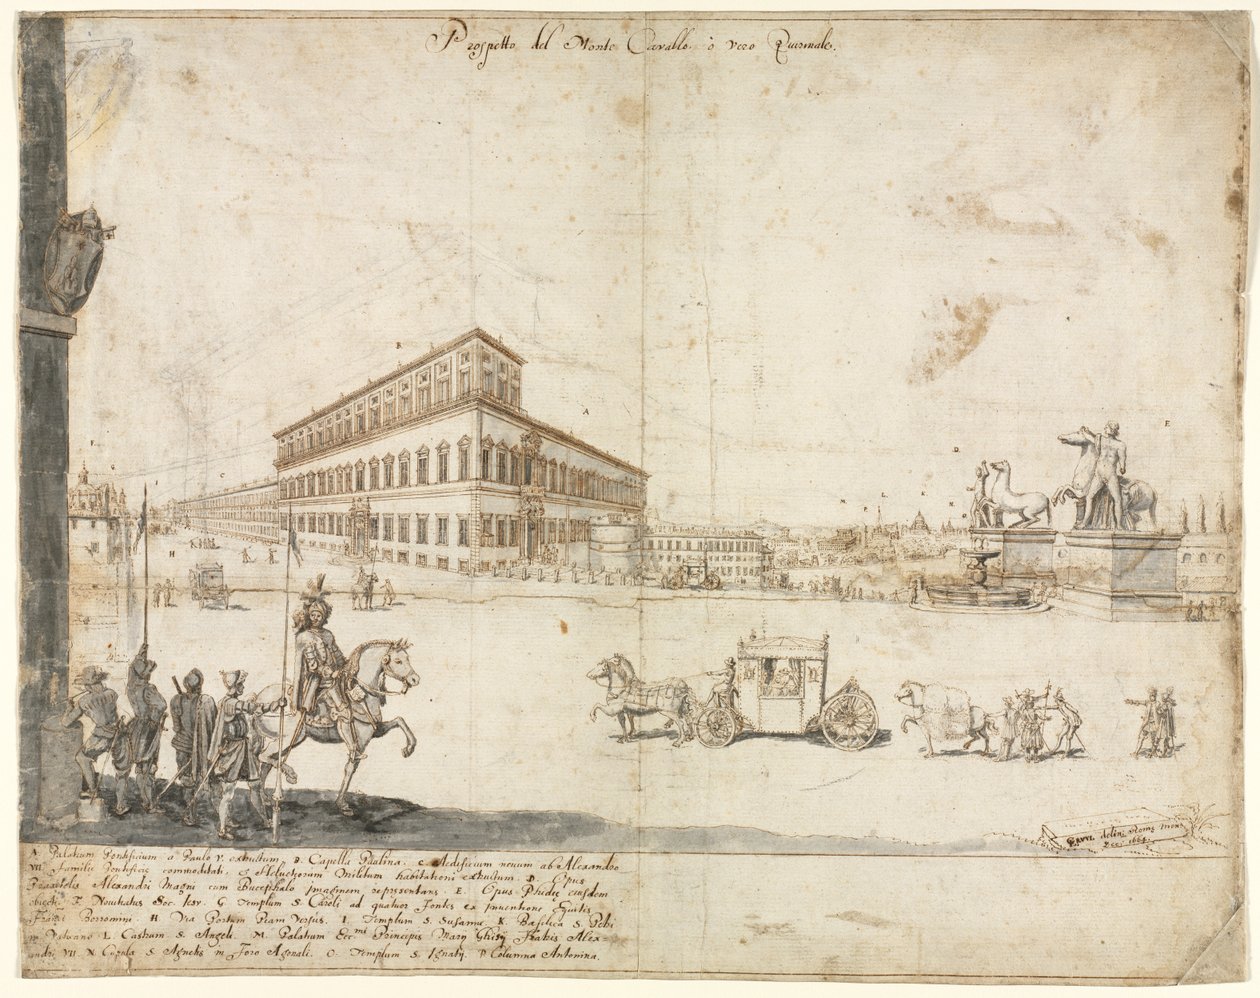 Prospetto del Monte Cavallo ò vero Quirinale.
A. Palatium Pontificium a Paulo V. exstructum B. Capella Paolina. C. Aedificium novum ab Alexandro
VII Familie Pontificie commoditati, et Helvetiorum Militum habitationi exstructum. D. Opus
Praxitelis Alexandri Magni cum Bucephalo imaginem representans. E. Opus Phidie eiusdem
obiecti. F. Novitiatus Soc. Iesv. G. Templum S. Caroli ad quatuor fontes ex inventione Equitis
Franci Borromini. H. Via Portam Piam Versus. I. Templum S. Susanne. K. Basilica S. Petri
in Vaticano L. Castrum S. Angeli. M. Palatium Principis Marij Ghisij Fratris Alex-
andri VII N. Cupola S. Agnetis in Foro Agonali. O. Templum S. Ignatij. P. Columna Antonina.
delin. Romæ
A
B
C
D
E
F
G
H